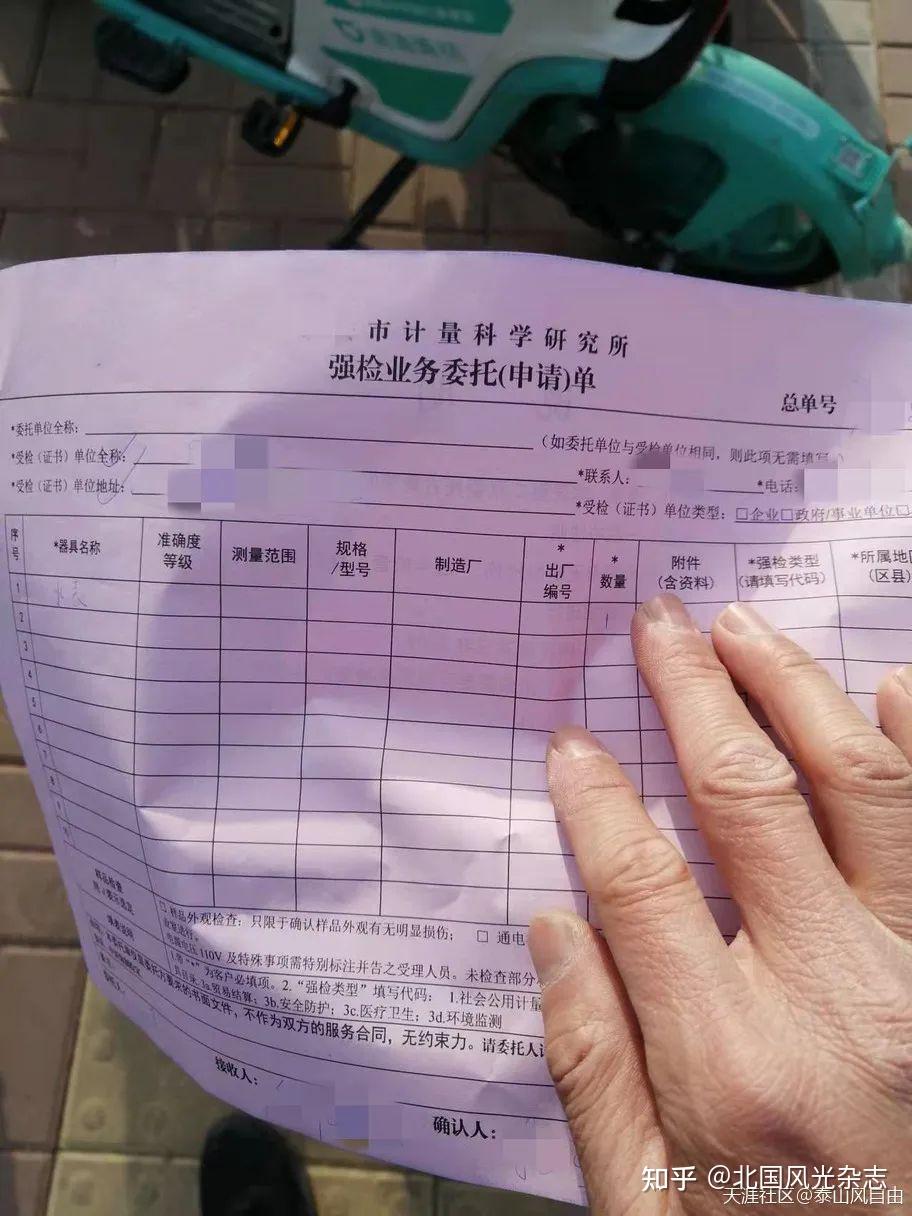 市计量科学研究所
强检业务委托(申请)单
总单号
*委托单位全称：
(如委托单位与受检单位相同，则此项无需填写。)
*受检（证书）单位全称：
*受检（证书）单位地址：
*联系人：
*电话：
*受检（证书）单位类型：□企业□政府/事业单位□
序号 *器具名称 准确度等级 测量范围 规格/型号 制造厂 *出厂编号 *数量 附件(含资料) *强检类型(请填写代码) *所属地区(区县)
1 水表 1
2
3
4
5
6
7
8
9
样品检查
□ 样品外观检查：只限于确认样品外观有无明显损伤； □ 通电
电源电压110V及特殊事项需特别标注并告之受理人员。未检查部分
1.带"*"为客户必填项。2."强检类型"填写代码： 1.社会公用计量
3a.贸易结算；3b.安全防护；3c.医疗卫生；3d.环境监测
的书面文件，不作为双方的服务合同，无约束力。请委托人
接收人：
确认人：
知乎 @北国风光杂志
天涯社区@泰山风自由